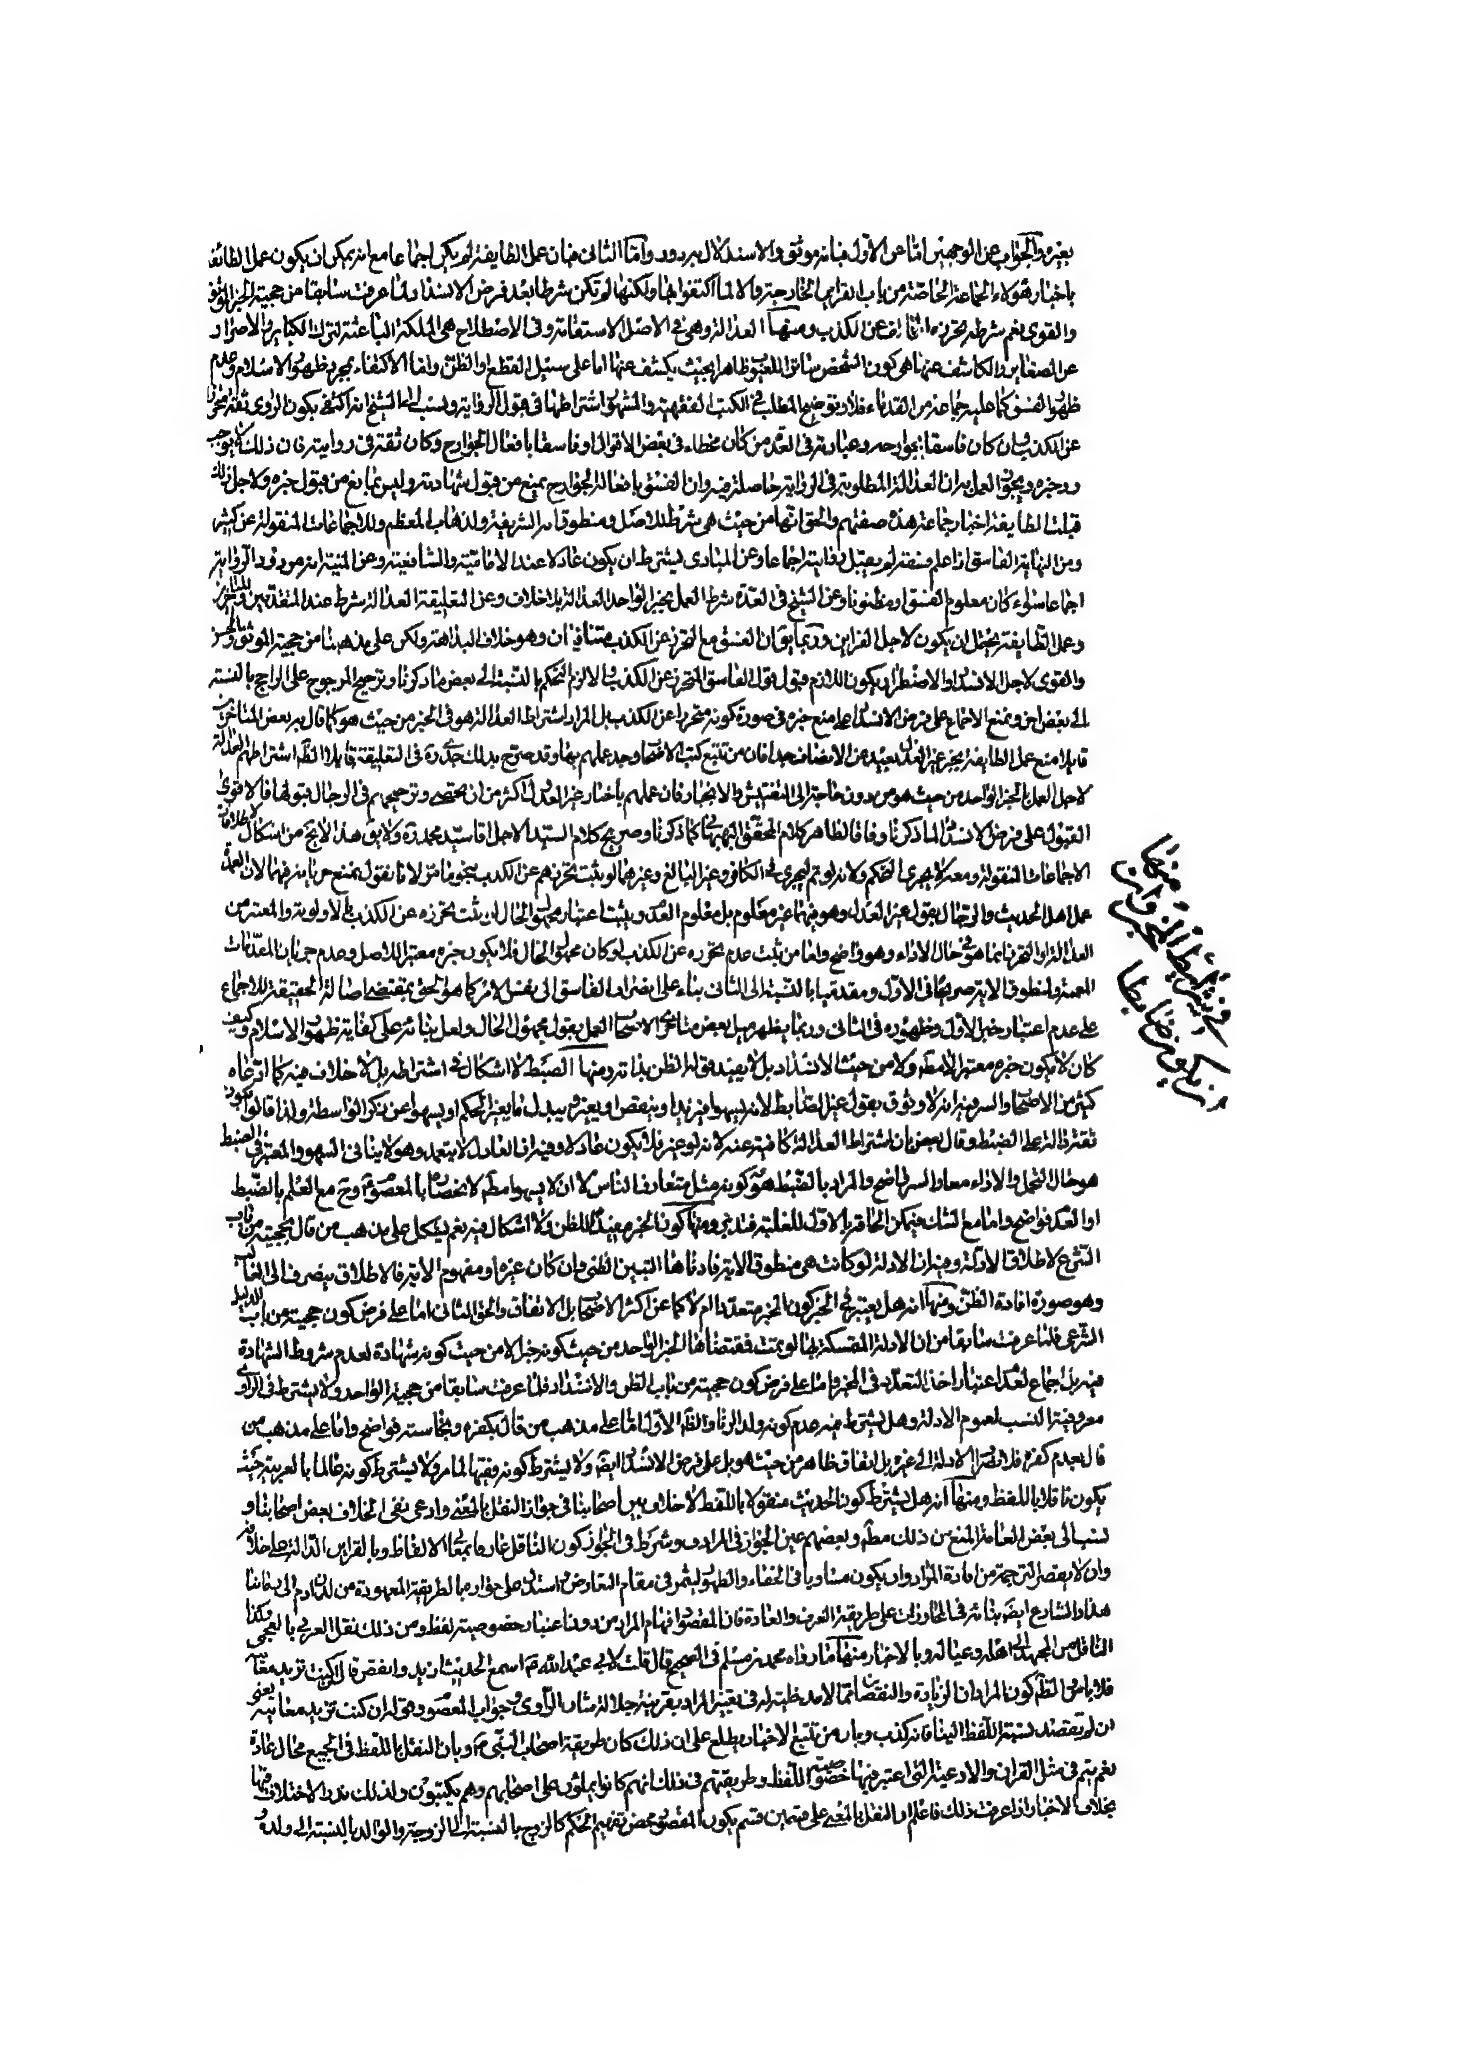 بغيره والجواب عن الوجهين امّا عن الاوّل فبانه موثق والاستدلال به دور وامّا الثاني فبان عمل الطايفة لم يكن اجماعا مع انه يمكن ان يكون عمل الطائفة
باخبار هؤلاء الجماعة الخاصّة من باب القراين الخارجية والا لما اكتفوا بها ولكنها لو تكن شرطا بعد فرض الانسداد ولما عرفت سابقا من حجية الخبر الموثق
والقوى نعم شرطه تحرزه عن الكذب ومنها العدالة وهي في الاصل الاستقامة وفي الاصطلاح هي الملكة الباعثة لترك الكباير والاصرار
عن الصغاير والكاشف عنها هي كون الشخص ساترا للعيوب ظاهرا بحيث يكشف عنها اما على سبيل القطع او الظن واما الاكتفاء بمجرد ظهور الاسلام وعدم
ظهور الفسق كما عليه جماعة من القدماء فلا وتوضيح المطلب في الكتب الفقهية والمشهور اشتراطها في قبول الرواية ونسب الى الشيخ انه اكتفى بكون الراوى ثقة متحرزا
عن الكذب وان كان فاسقا بجوارحه وعبارته في العدّة من كان مخطاء في بعض الاقوال او فاسقا بافعال الجوارح وكان ثقة في روايته فان ذلك لا يوجب
رد خبره ويجوز العمل به لان العدالة المطلوبة في الرواية حاصلة فيه وان الفسق بافعال الجوارح يمنع من قبول شهادته وليس بمانع من قبول خبره ولاجل ذلك
قبلت الطايفة اخبار جماعة هذه صفتهم والحق انها من حيث هي شرط للاصل ومنطوق اية الشريفة ولذهاب المعظم وللاجماعات المنقولة عن كثير
ومن النهاية الفاسق اذا علم فسقه لم يقبل روايته اجماعا وعن المبادى يشترط ان يكون عادلا عند الامامية والشافعية وعن المنية انه مردود الرواية
اجماعا سواء كان معلوم الفسق او مظنونا وعن الشيخ في العدّة شرط العمل بخبر الواحد العدالة بلا خلاف وعن التعليقة العدالة شرط عند المتقدمين والمتاخرين
وعمل الطايفة يحتمل ان يكون لاجل القراين وربما يق ان الفسق مع التحرز عن الكذب متنافيان وهو خلاف البداهة ولكن على مذهبنا من حجية الموثق والحسن
والقوى لاجل الانسداد والاضطرار يكون اللازم قبول قول الفاسق المتحرز عن الكذب والا لزم التحكم بالنسبة الى بعض ما ذكرنا وترجيح المرجوح على الراجح بالنسبة
الى بعض اخر ونمنع الاجماع على فرض الانسداد على منع خبره في صورة كونه متحرزا عن الكذب بل المراد اشتراط العدالة هو في الخبر من حيث هو كما قال به بعض المتاخرين
قايلا منع عمل الطايفة بخبر غير العدل بعيد عن الانصاف جدا فان من تتبع كتب الاصحاب وجد عملهم بها وقد صرّح بذلك جدى ره في التعليقة قايلا الظ اشتراطهم العدالة
لاجل العمل بالخبر الواحد من حيث هو من دون حاجة الى التفتيش والانجبار فان عملهم باخبار غير العدول اكثر من ان يحصى وترجيحهم في الرجال قبولها فالاقوى
القبول على فرض الانسداد لما ذكرنا وفاقا لظاهر كلام المحقق البهبهاني كما ذكرنا وصريح كلام السيد الاجل اقا سيد محمد ره ولا يق هذا لا يخ من اشكال لاطلاقات
الاجماعات المنقولة ومعه لا يجرى التحكم ولانه لو تم ليجرى في الكافر وغير البالغ وغيرهما لو يثبت تحرزهم عن الكذب بنحو ما مرّ لانا نقول نمنع جريانه فيهما لان العمدة
عمل اهل الحديث والرجال بقول غير العدل وهو فيهما غير معلوم بل معلوم العدم ويثبت اعتبار مجهول الحال ان ثبت تحرزه عن الكذب بالاولوية والمعتبر من
العدالة او التحرز انما هو في حال الاداء وهو واضح واما من يثبت عدم تحرزه عن الكذب او كان مجهول الحال فلا يكون خبره معتبرا للاصل وعدم جريان المقدّمات
المعينة ولمنطوق الاية صريحا في الاوّل ومقدميا بالنسبة الى الثاني بناء على انصراف الفاسق الى نفس الامر كما هو الحق بمقتضى اصالة الحقيقة للاجماع
على عدم اعتبار خبر الاوّل وظهوره في الثاني وربما يظهر ميل بعض متاخرى الاصحاب العمل بقول مجهول الحال ولعل بنائه على كفاية ظهور الاسلام وكيف
كان لا يكون خبره معتبرا لا مط ولا من حيث الانسداد بل لا يفيد قوله الظن بذاته ومنها الضبط لا اشكال في اشتراطه بل لا خلاف فيه كما ادعاه
كثير من الاصحاب والسر فيه انه لا وثوق بقول غير الضابط لانه يسهو فيزيد او ينقص او يغير ويبدل بما يغير الحكم او يسهو عن ذكر الواسطة ولذا قالوا بكون
ثقة دالة على الضبط وقال بعض بان اشتراط العدالة كافية عنه لانه لو غير فلا يكون عادلا وفيه ان العادل لا يتعمد وهو لا ينافي السهو والمعتبر في الضبط
هو حال التحمل والاداء معا والسر واضح والمراد بالضبط هو كونه مثل متعارف الناس لا ان لا يسهو مط لانحصاره بالمعصوم وح مع العلم بالضبط
او العدم فواضح واما مع الشك فيمكن الحاقه بالاوّل للغلبة فتدبر ومنها كون الخبر مفيدا للظن ولا اشكال فيه نعم يشكل على مذهب من قال بحجيته من باب
الشرع لاطلاق الادلة وفيه ان الادلة لو كانت هي منطوق الاية فادناها التبين الظني وان كان غيره او مفهوم الاية فالاطلاق ينصرف الى الغالب
وهو صورة افادة الظن ومنها انه هل يعتبر في الخبر كون المخبر متعددا ام لا كما عن اكثر الاصحاب بل الاتفاق والحق الثاني اما على فرض كون حجيته من باب الدليل
الشرعي فلما عرفت سابقا من ان الادلة المتمسكة بها لو تمت فمقتضاها الخبر الواحد من حيث كونه خبرا لا من حيث كونه شهادة لعدم شروط الشهادة
فيه بل اجماع لعدم اعتبار اخذ التعدد في الخبر واما على فرض كون حجيته من باب الظن والانسداد فلما عرفت سابقا من حجية الواحد ولا يشترط في الراوى
معروفية النسب لعموم الادلة وهل يشترط فيه عدم كونه ولد الزنا والظ الاوّل امّا على مذهب من قال بكفره ونجاسته فواضح واما على مذهب من
قال بعدم كفره فلانصراف الادلة الى غيره بل اتفاق ظاهر من حيث هو بل على فرض الانسداد ايضا ولا يشترط كونه فقيها لما مر ولا يشترط كونه عالما بالعربية حيث
يكون ناقلا باللفظ ومنها انه هل يشترط كون الحديث منقولا باللفظ لا خلاف بين اصحابنا في جواز النقل بالمعنى وادعى نفى الخلاف بعض اصحابنا و
نسب الى بعض العامة المنع من ذلك مط وبعضهم عين الجواز في المرادف وشرط في الجواز كون الناقل عارفا بمعانى الالفاظ وبالقراين الدالة على خلافه
وان لا يقصر الترجمة من افادة المراد وان يكون مساويا في الخفاء والظهور ليثمر في مقام التعارض واستدل على جوازه بالطريقة المعهودة من لدن ادم الى زماننا
هذا والشارع ايضا بنائه في المحاورات على طريقة العرف والعادة فان المقصود افهام المراد من دون اعتبار خصوصية لفظ ومن ذلك نقل العربي بالعجمى وكذا
الناقل من المجتهد الى اهله وعياله وبالاخبار منها ما رواه محمد بن مسلم في الصحيح قال قلت لابي عبد الله ع اسمع الحديث ازيد وانقص قال ان كنت تريد معانيه
فلا باس والظ كون المراد ان الزيادة والنقصان مما لا مدخلية له في تغيير المراد بقرينة جلالة شان الراوى وجواب المعصوم ع وقوله ان كنت تريد معانيه يعنى
ان لم تقصد نسبة اللفظ الينا فانه كذب وبان من تتبع الاخبار يطلع على ان ذلك كان طريقة اصحاب النبي ص وبان النقل باللفظ في الجميع محال عادة
نعم يتم في مثل القران والادعية التى اعتبر فيها خصوصية اللفظ وطريقتهم في ذلك انهم كانوا يملون على اصحابهم وهم يكتبون ولذلك ندر الاختلاف فيها
بخلاف الاخبار اذا عرفت ذلك فاعلم ان النقل بالمعنى على قسمين قسم يكون المقصود محض تفهيم الحكم كالزوج بالنسبة الى الزوجة والوالد بالنسبة الى ولده
ومنها
في شرائط المخبر وانه
ان يكون ضابطا